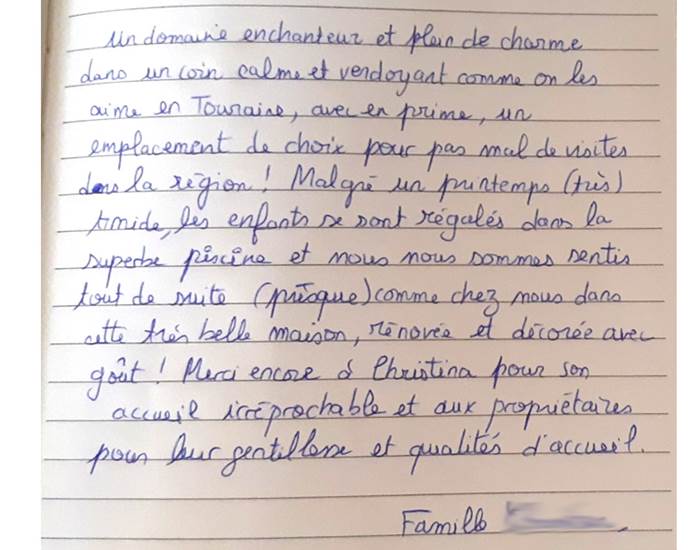 Un domaine enchanteur et plein de charme
dans un coin calme et verdoyant comme on les
aime en Touraine, avec en prime, un
emplacement de choix pour pas mal de visites
dans la région ! Malgré un printemps (très)
timide, les enfants se sont régalés dans la
superbe piscine et nous nous sommes sentis
tout de suite (presque) comme chez nous dans
cette très belle maison, rénovée et décorée avec
goût ! Merci encore à Christina pour son
accueil irréprochable et aux propriétaires
pour leur gentillesse et qualités d'accueil.
Famille